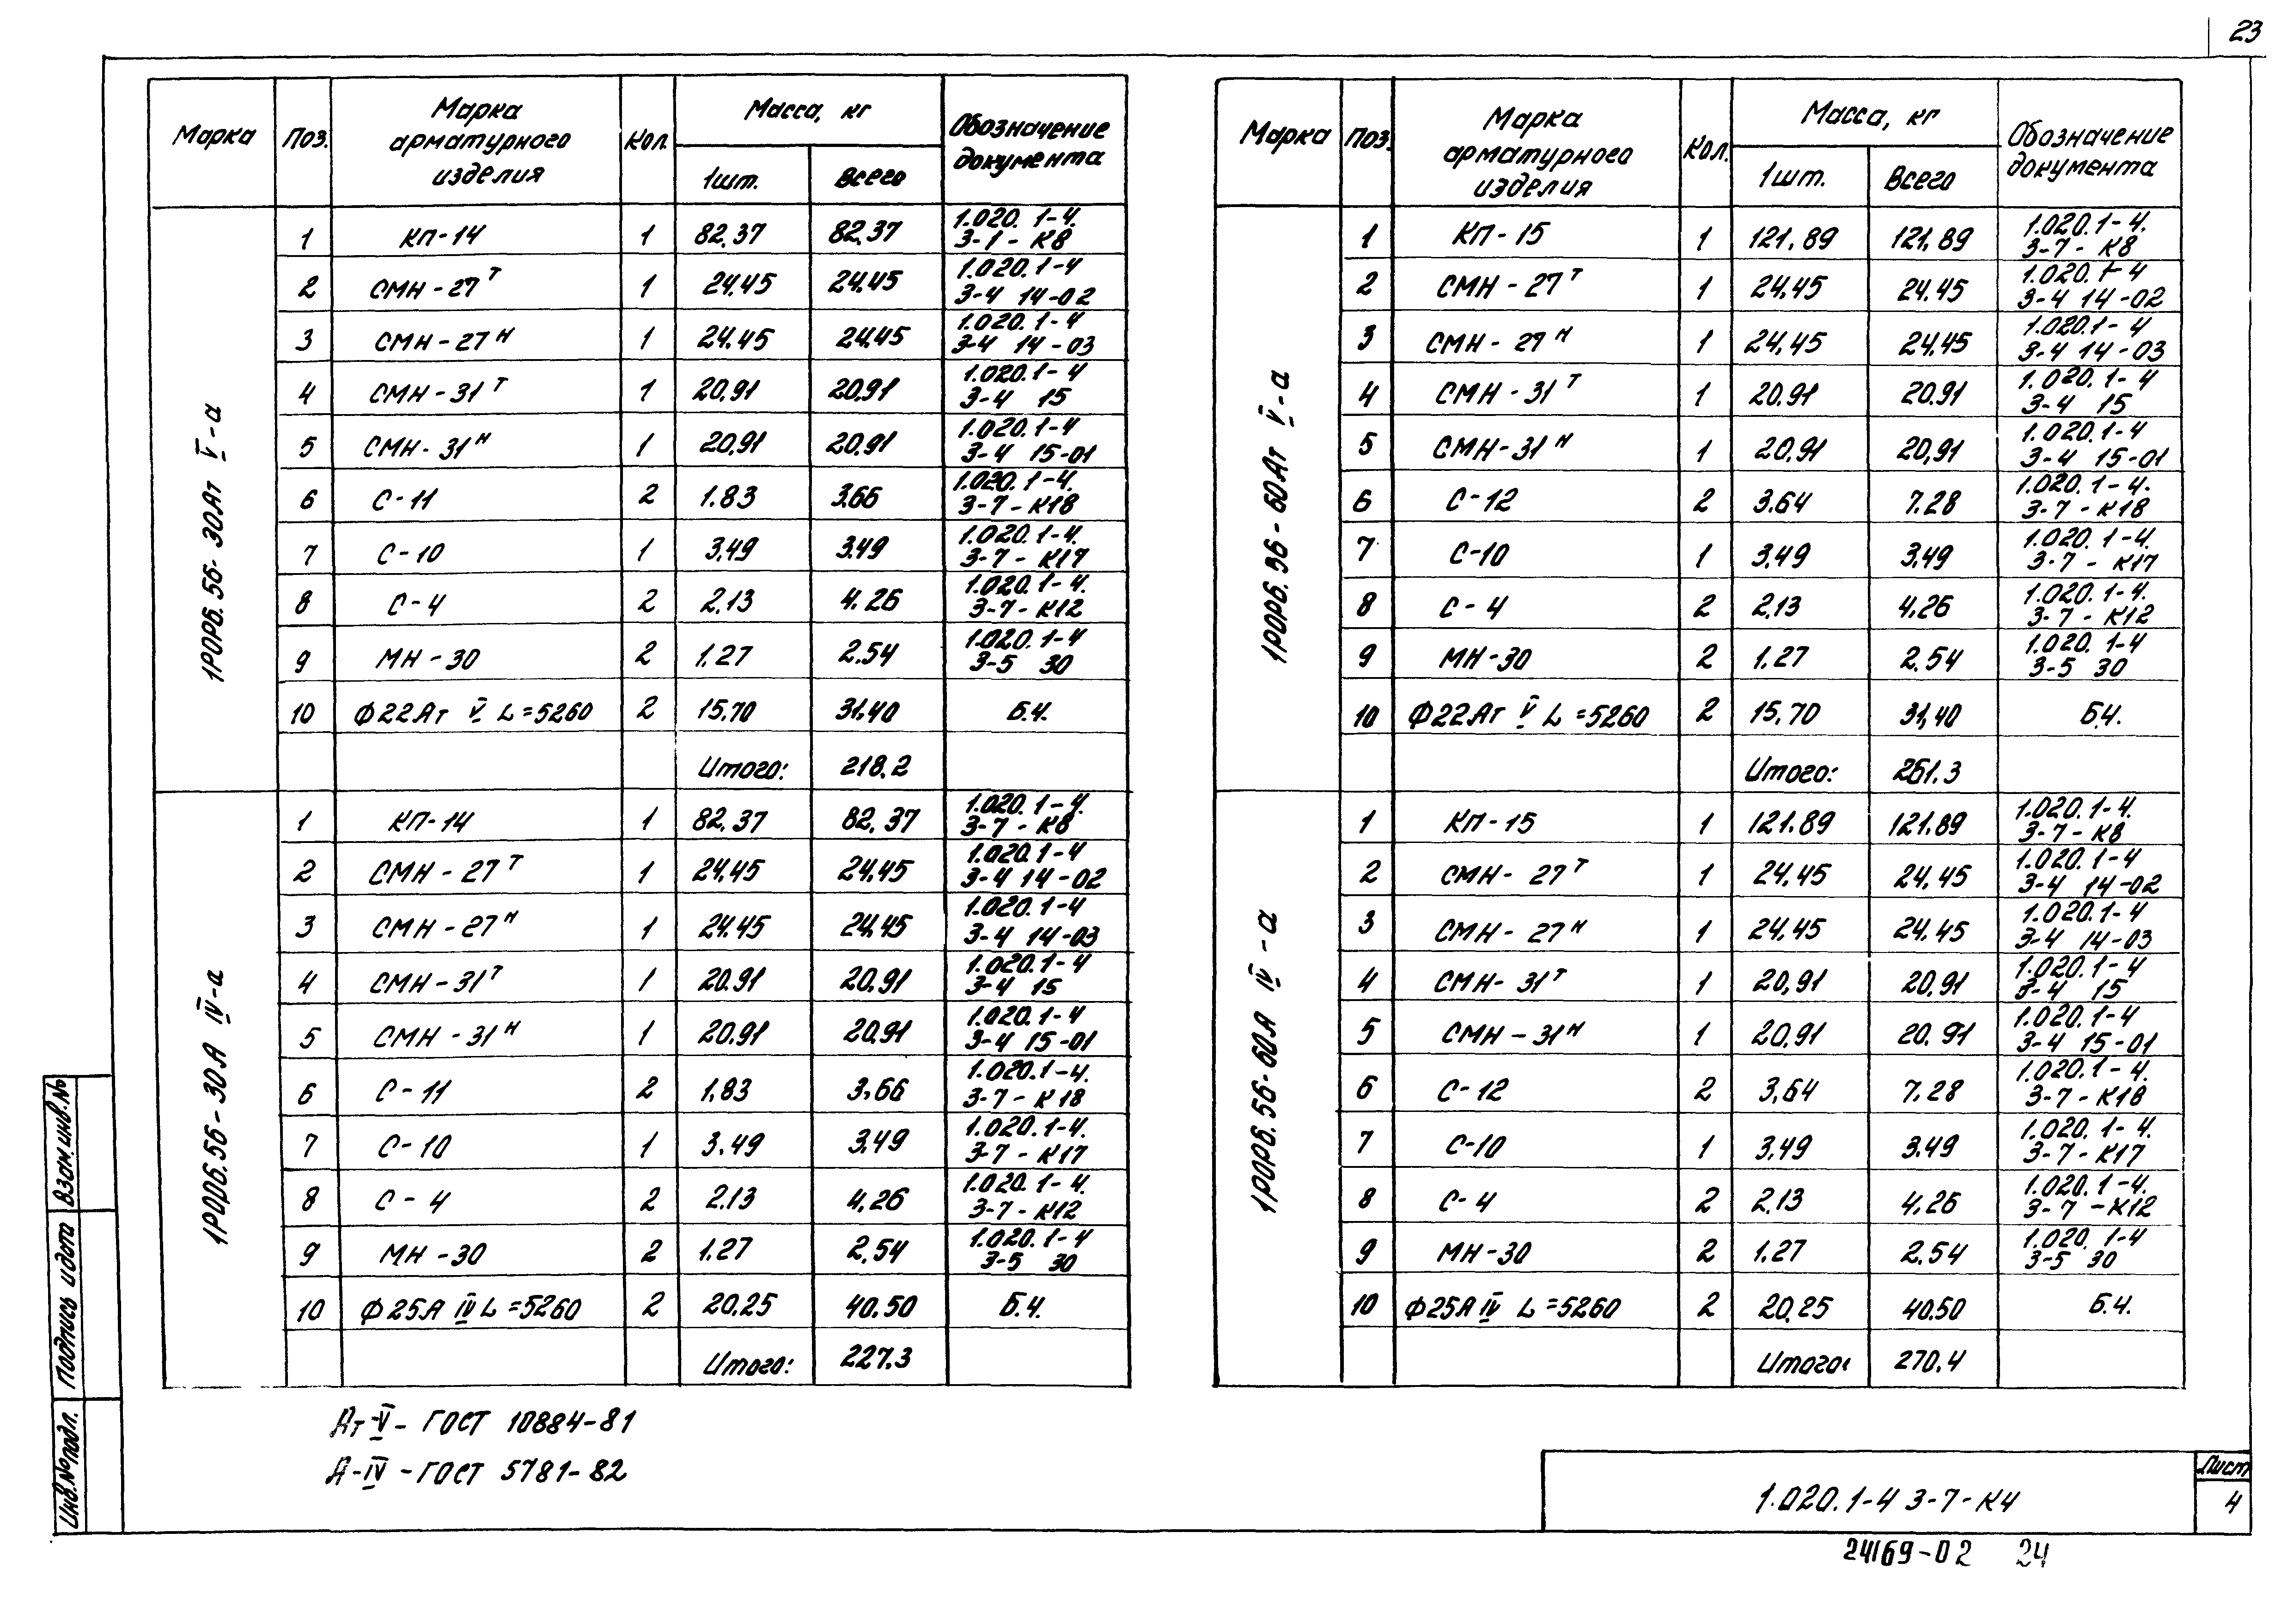 23
Марка Поз. Марка арматурного изделия Кол. Масса, кг Обозначение документа
1шт. Всего
1РОР6.56-30Ат V-а
1 КП-14 1 82,37 82,37 1.020.1-4. 3-1-К8
2 СМН-27Т 1 24,45 24,45 1.020.1-4 3-4 14-02
3 СМН-27Н 1 24,45 24,45 1.020.1-4 3-4 14-03
4 СМН-31Т 1 20,91 20,91 1.020.1-4 3-4 15
5 СМН-31Н 1 20,91 20,91 1.020.1-4 3-4 15-01
6 С-11 2 1.83 3,66 1.020.1-4. 3-7-К18
7 С-10 1 3,49 3,49 1.020.1-4. 3-7-К17
8 С-4 2 2,13 4,26 1.020.1-4. 3-7-К12
9 МН-30 2 1,27 2,54 1.020.1-4 3-5 30
10 Ф22Ат V L=5260 2 15,70 31,40 Б.ч.
Итого: 218,2
1РОР6.56-30А IV-а
1 КП-14 1 82,37 82,37 1.020.1-4. 3-7-К8
2 СМН-27Т 1 24,45 24,45 1.020.1-4 3-4 14-02
3 СМН-27Н 1 24,45 24,45 1.020.1-4 3-4 14-03
4 СМН-31Т 1 20,91 20,91 1.020.1-4 3-4 15
5 СМН-31Н 1 20,91 20,91 1.020.1-4 3-4 15-01
6 С-11 2 1,83 3,66 1.020.1-4. 3-7-К18
7 С-10 1 3,49 3,49 1.020.1-4. 3-7-К17
8 С-4 2 2,13 4,26 1.020.1-4. 3-7-К12
9 МН-30 2 1,27 2,54 1.020.1-4 3-5 30
10 Ф25А IV L=5260 2 20,25 40,50 Б.ч.
Итого: 227,3
Ат-V- ГОСТ 10884-81
А-IV-ГОСТ 5781-82
Марка Поз. Марка арматурного изделия Кол. Масса, кг Обозначение документа
1шт. Всего
1РОР6.56-60Ат V-а
1 КП-15 1 121,89 121,89 1.020.1-4. 3-7-К8
2 СМН-27Т 1 24,45 24,45 1.020.1-4 3-4 14-02
3 СМН-27Н 1 24,45 24,45 1.020.1-4 3-4 14-03
4 СМН-31Т 1 20,91 20,91 1.020.1-4 3-4 15
5 СМН-31Н 1 20,91 20,91 1.020.1-4 3-4 15-01
6 С-12 2 3,64 7,28 1.020.1-4. 3-7-К18
7 С-10 1 3,49 3,49 1.020.1-4. 3-7-К17
8 С-4 2 2,13 4,26 1.020.1-4. 3-7-К12
9 МН-30 2 1,27 2,54 1.020.1-4 3-5 30
10 Ф22Ат V L=5260 2 15,70 31,40 Б.ч.
Итого: 261,3
1РОР6.56-60А IV-а
1 КП-15 1 121,89 121,89 1.020.1-4. 3-7-К8
2 СМН-27Т 1 24,45 24,45 1.020.1-4 3-4 14-02
3 СМН-27Н 1 24,45 24,45 1.020.1-4 3-4 14-03
4 СМН-31Т 1 20,91 20,91 1.020.1-4 3-4 15
5 СМН-31Н 1 20,91 20,91 1.020.1-4 3-4 15-01
6 С-12 2 3,64 7,28 1.020.1-4. 3-7-К18
7 С-10 1 3,49 3,49 1.020.1-4. 3-7-К17
8 С-4 2 2,13 4,26 1.020.1-4. 3-7-К12
9 МН-30 2 1,27 2,54 1.020.1-4 3-5 30
10 Ф25А IV L=5260 2 20,25 40,50 Б.ч.
Итого: 270,4
Взам.инв.№
Подпись и дата
Инв.№подл.
1.020.1-4 3-7-К4
Лист
4
24169-02 24